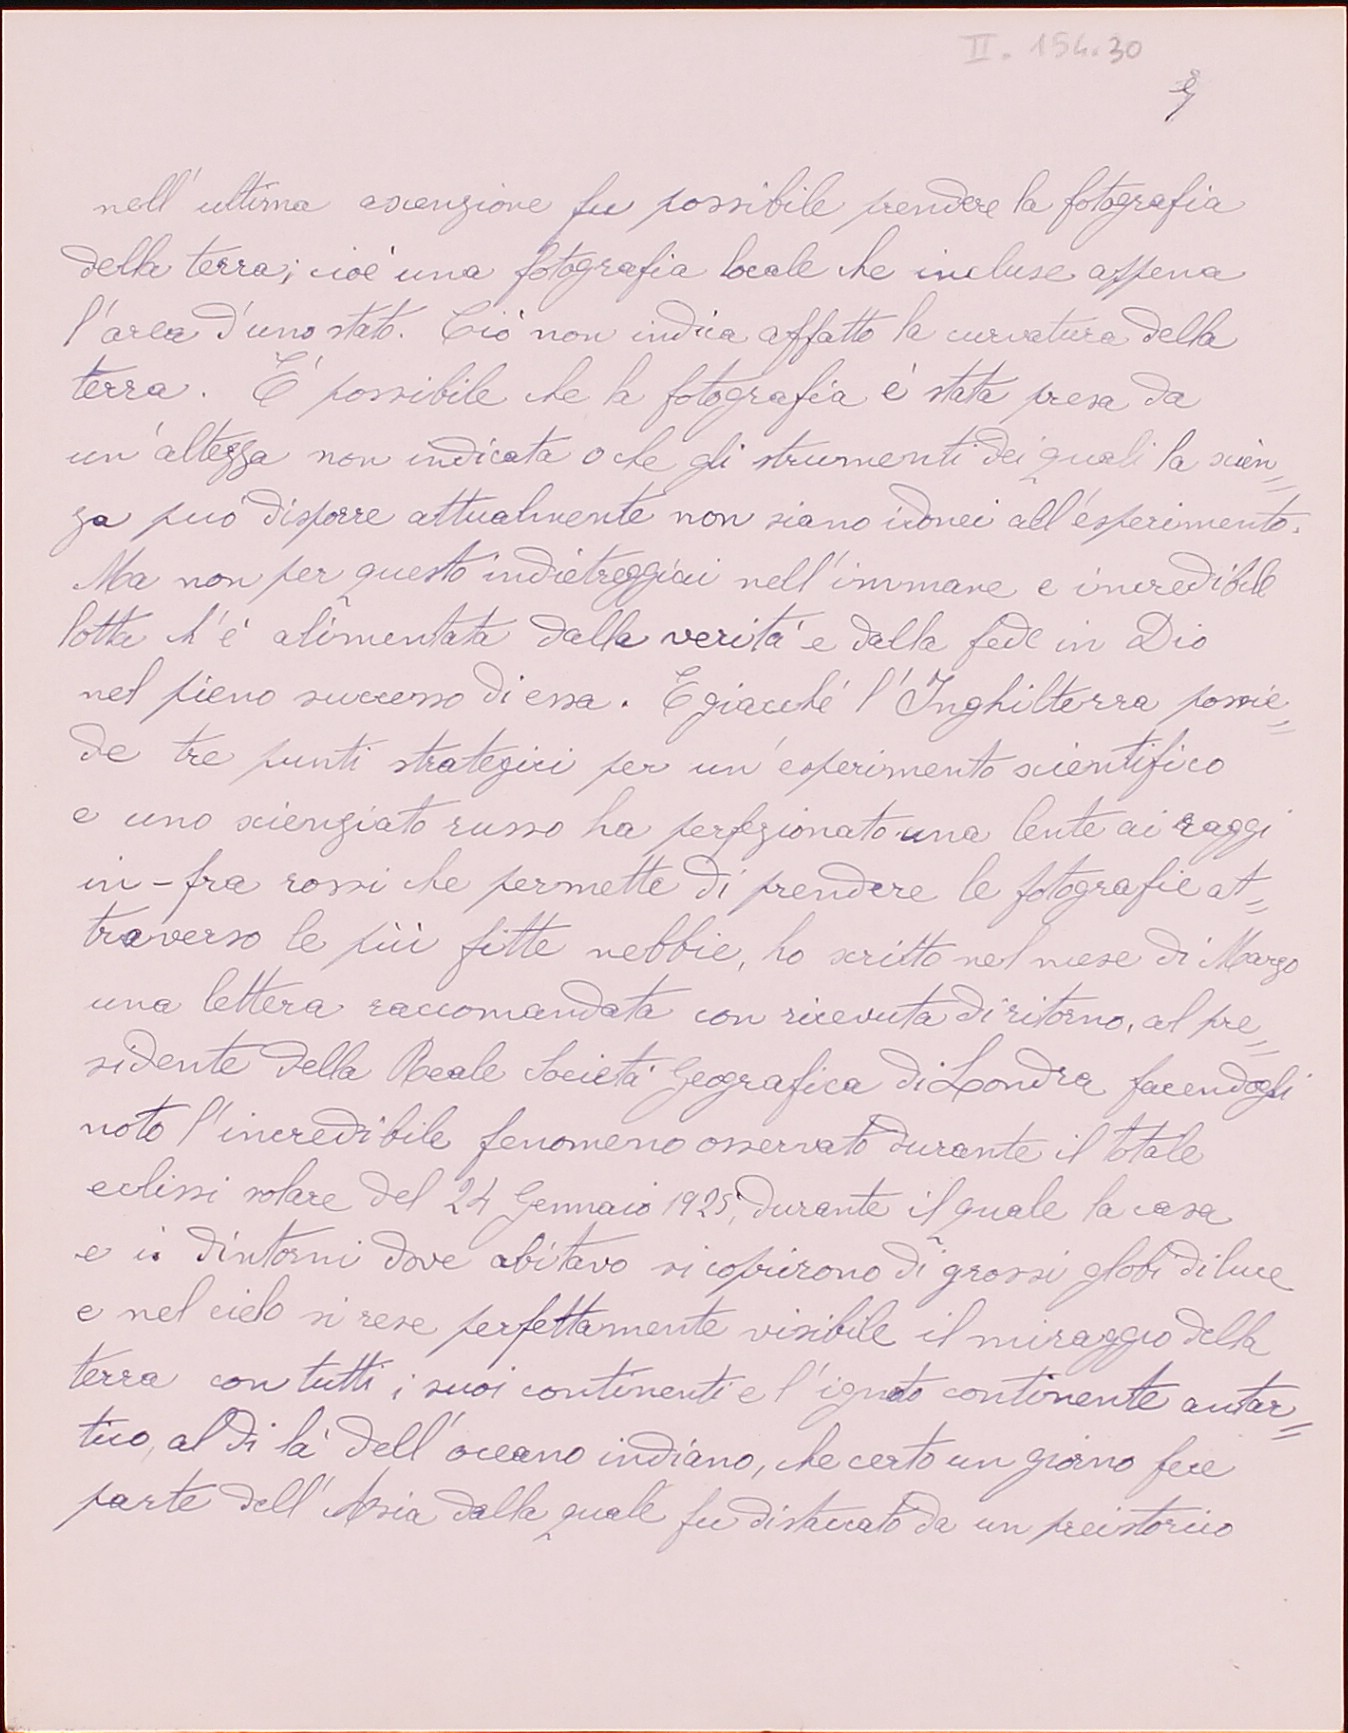 II. 154.30
nell'ultima ascenzione fu possibile prendere la fotografia
della terra; cioé una fotografia locale che incluse appena
l'area d'uno stato. Ció non indica affatto la curvatura della
terra. É possibile che la fotografia é stata presa da
un'altezza non indicata o che gli strumenti dei quali la scien=
za puó disporre attualmente non siano idonei all'esperimento.
Ma non per questo indietreggiai nell'immane e incredibile
lotta ch'é alimentata dalla veritá e dalla fede in Dio
nel pieno successo di essa. E giacché l'Inghilterra possie=
de tre punti strategici per un esperimento scientifico
e uno scienziato russo ha perfezionato una lente ai raggi
in-fra rossi che permette di prendere le fotografie at=
traverso le piú fitte nebbie, ho scritto nel mese di Marzo
una lettera raccomandata con ricevuta di ritorno, al pre=
sidente della Reale Societá Geografica di Londra facendogli
noto l'incredibile fenomeno osservato durante il totale
eclissi solare del 24 Gennaio 1925, durante il quale la casa
e i dintorni dove abitavo si coprirono di grossi globi di luce
e nel cielo si rese perfettamente visibile il miraggio della
terra con tutti i suoi continenti e l'ignoto continente antar=
tico, al di lá dell'oceano indiano, che certo un giorno fece
parte dell'Asia dalla quale fu distaccato da un preistorico